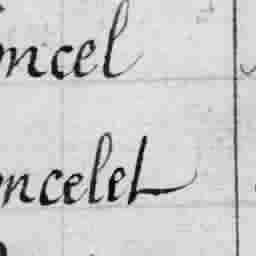 oncel
oncelet